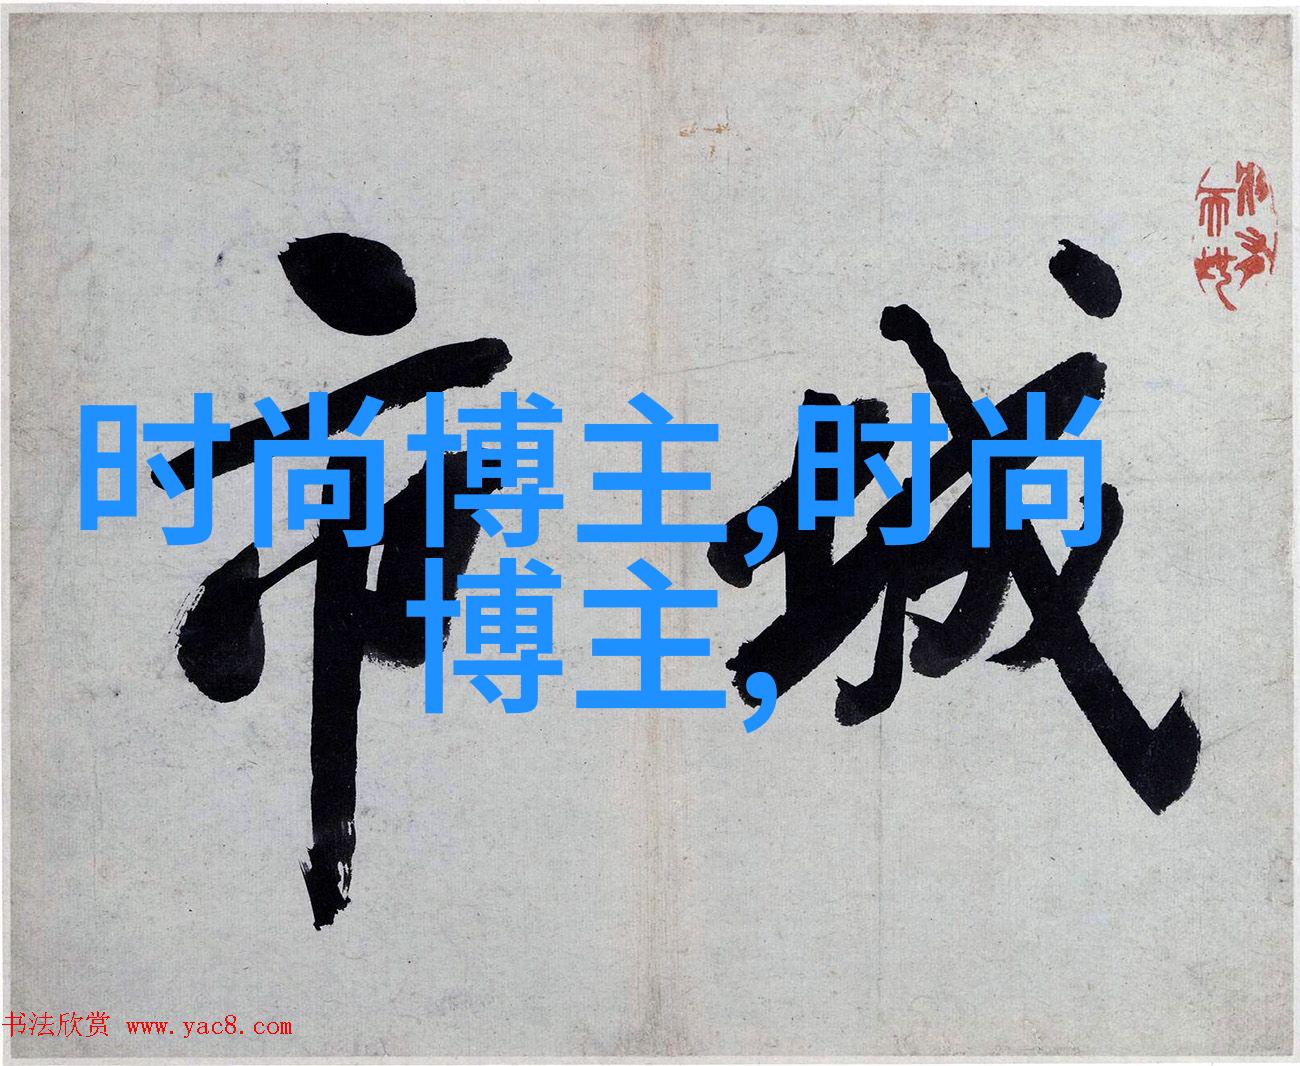 城市
时尚博主,时尚
博主,
书法欣赏 www.yac8.com